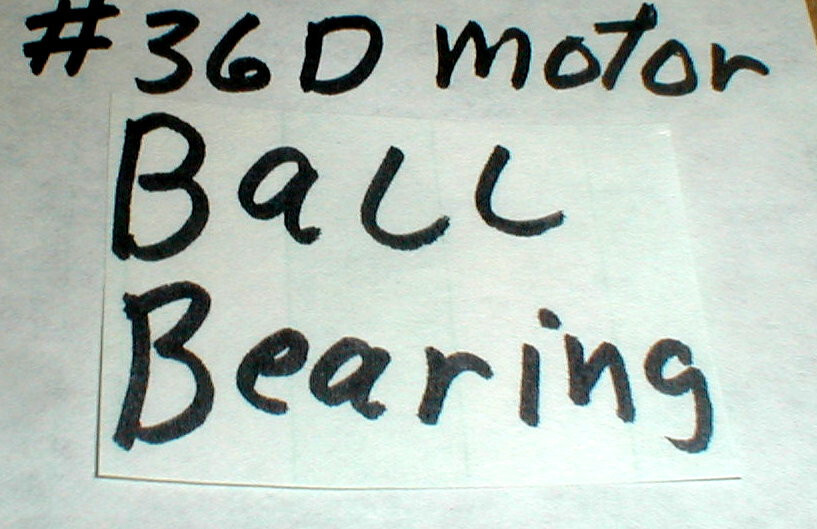 #36D motor
Ball
Bearing